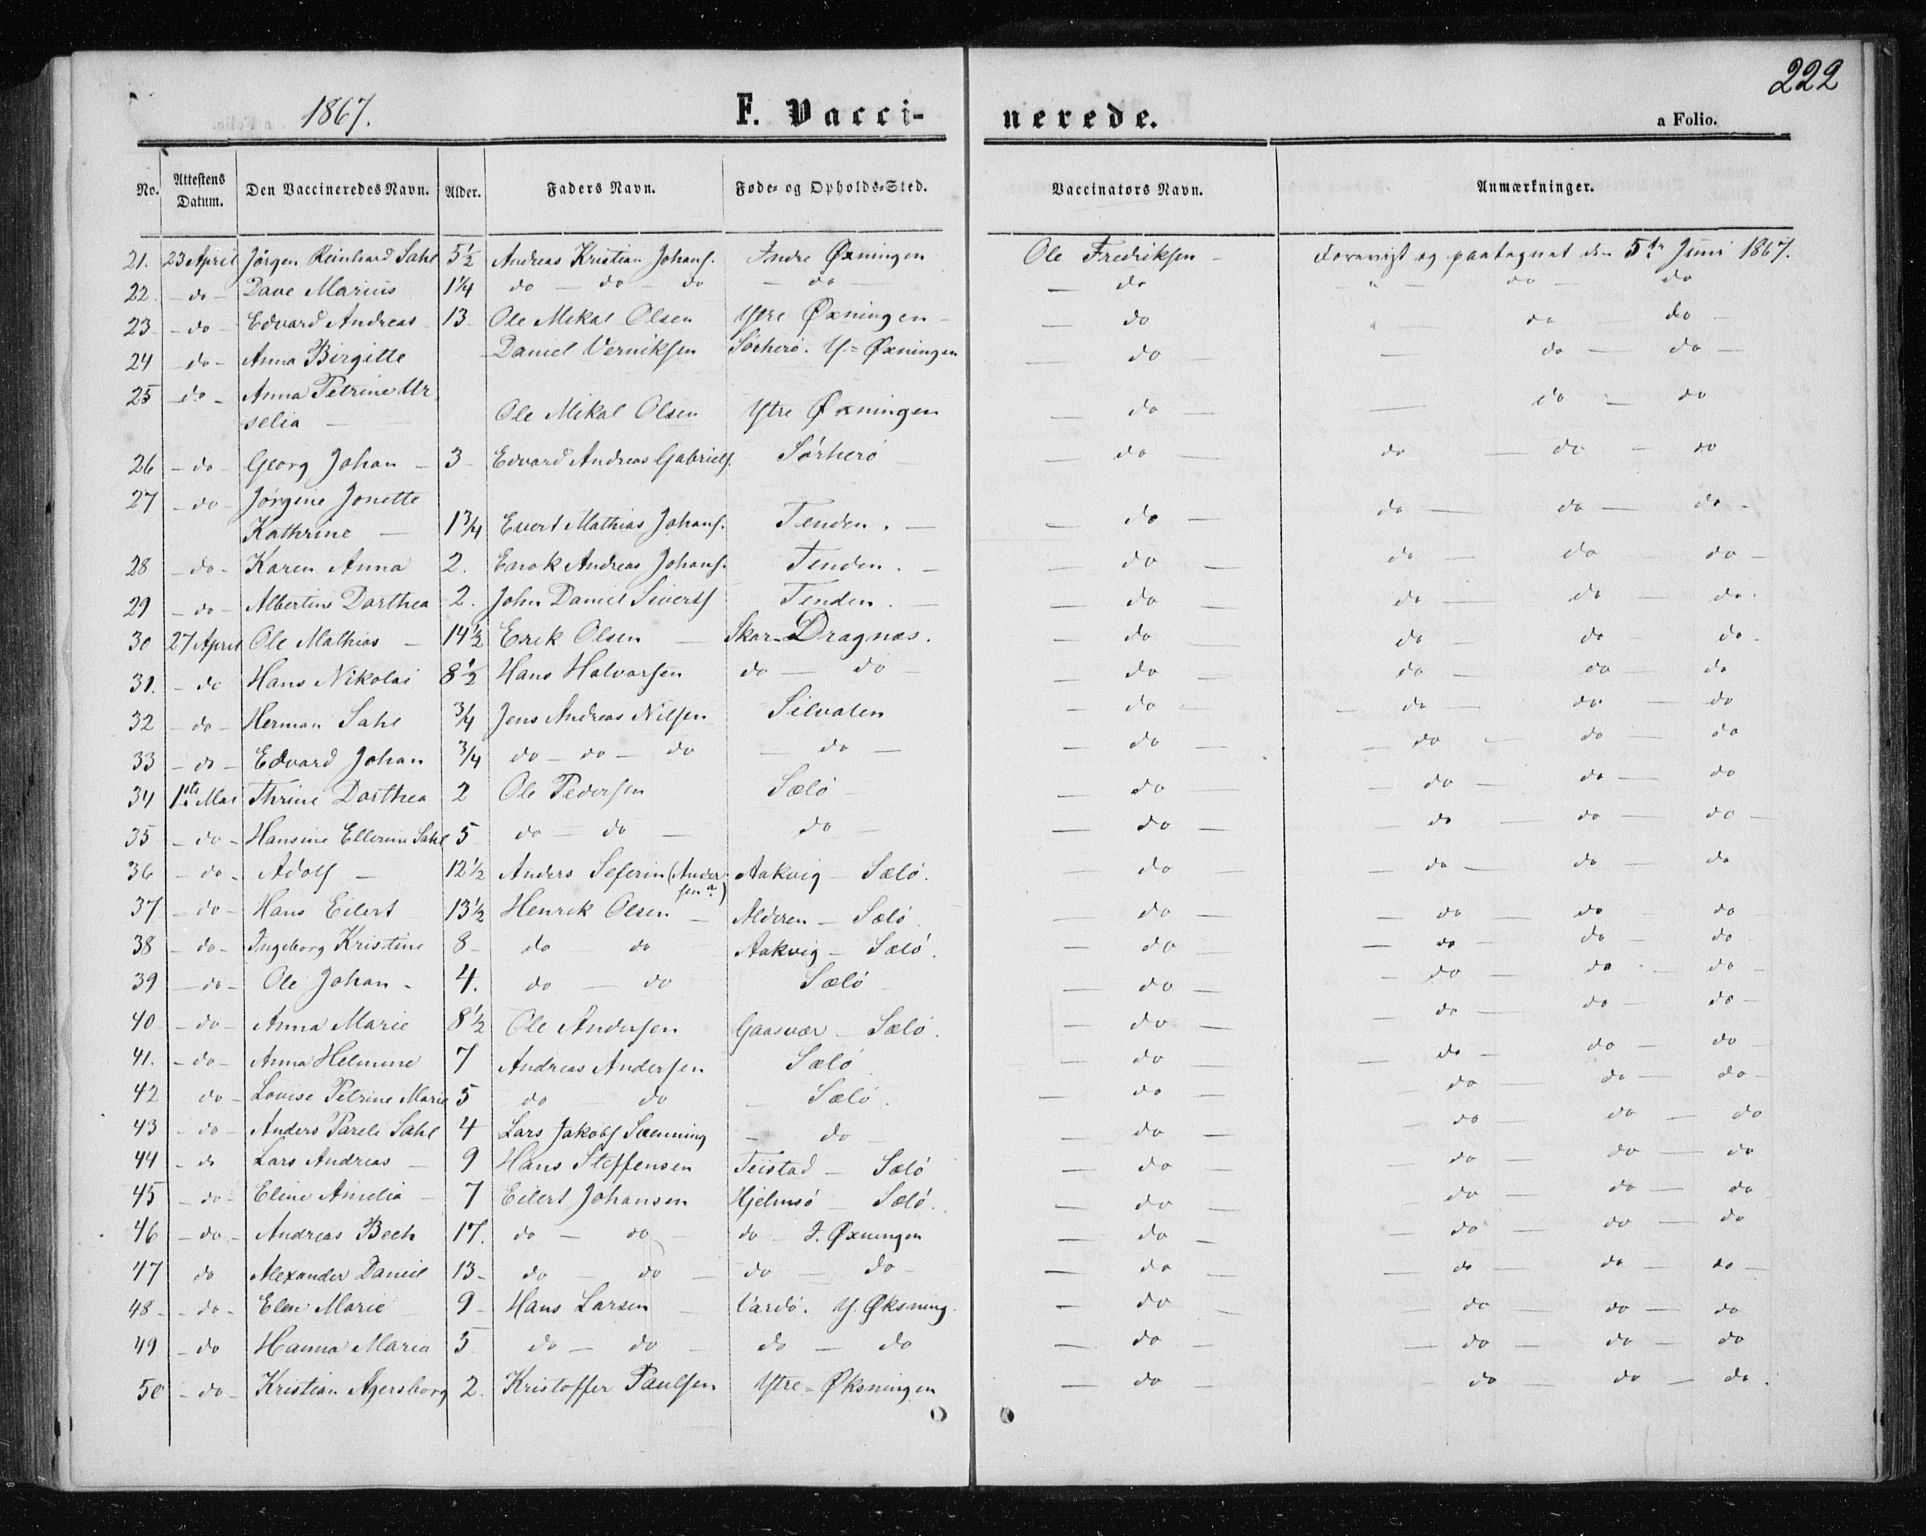 222
1867.
F. Vacci-
nerede.
a Folio.
No. Attestens Datum. Den Vaccineredes Navn. Alder. Faders Navn. Føde- og Opholds-Sted. Vaccinators Navn. Anmærkninger.
21. 23 April Jørgen Reinhard Sahl 5½ Andreas Kristian Johans. Indre Øxningen Ole Fredriksen - Forevist og paategnet den 5te Juni 1867.
22. - do - Dave Marius 1¼ do - do - do - do - - do " - do - do
23 - do - Edvard Andreas 13 Ole Mikal Olsen Ytre Øxningen - - do " - do - do -
24 - do - Anna Birgitte Daniel Verniksen Sørherø. Y= Øxningen - do - - do - do -
25 - do - Anna Petrine Ur
selia - Ole Mikal Olsen Ytre Øxningen - do - - do - do
26 - do - Georg Johan - 3 - Edvard Andreas Gabriels. Sørherø - do - do - do - do
27 - do - Jørgine Jonette
Kathrine - 1¾ Evert Mathias Johans. Tenden. - - do - do - do - do -
28 - do - Karen Anna 2. Enok Andreas Johans. Tenden. - - do - do - do - do -
29 - do - Albertine Dorthea 2. John Daniel Siverts Tenden. - - do - do - do - do.
30 27 April Ole Mathias - 14½ Erik Olsen - Skar-Dragnæs. - do - do - do - do.
31. - do Hans Nikolai 8½ Hans Halvorsen do - do - - do - do - do - do
32 - do - Herman Sahl ¾ Jens Andreas Nilsen Silvalen - do - - do - do - do
33 - do - Edvard Johan ¾ do - do - do - do - - do - - do - do - do
34 1ste Mai Thrine Dorthea 2 Ole Pedersen Sælø - - do - - do - do - do
35 - do - Hansine Ellerine Sahl 5 do - do - do - - do - - do - do - do -
36 - do - Adolf - 12½ Anders Seferin (Ander
sen?) Aakvig - Sælø. - do - do - do - do
37 - do - Hans Eilert 13½ Henrik Olsen - Alderen - Sælø - do - - do - do - do
38 - do - Ingeborg Kristine 8 - do - do Aakvig - Sælø. - do - - do - do - do
39 - do - Ole Johan - 4. do - do Sælø - do - - do - do - do -
40 - do - Anna Marie 8½ Ole Andersen Gaasvær - Sælø. - do - - do - do - do -
41. - do - Anna Helmine 7 Andreas Andersen Sælø - do - do - do - do -
42 do - Lovise Petrine Marie 5 do - do - Sælø. - do - - do - do - do -
43 - do - Anders Parele Sahl 4 Lars Jakobs Sænning - do - - do - - do - do - do
44 - do Lars Andreas - 9 Hans Steffensen Teistad - Sælø - do - - do - do - do
45 - do - Eline Amelia - 7 Eilert Johansen Hjelmsø - Sælø. - do - - do - do - do
46 - do - Andreas Bech 17. do - do - do - I. Øxningen - do - - do - do - do
47 do Alexander Daniel 13 - do - do - do - do - - do - - do - do - do -
48 - do - Elen Marie 9 - Hans Larsen - Vardø. Y. Øksning. - do - - do - do - do
49 - do Hanna Maria 5 do - do - do - do - do - - do - do - do
50 - do - Kristian Agersborg 2. Kristoffer Paulsen Ytre - Øksningen - do - - do - do - do.